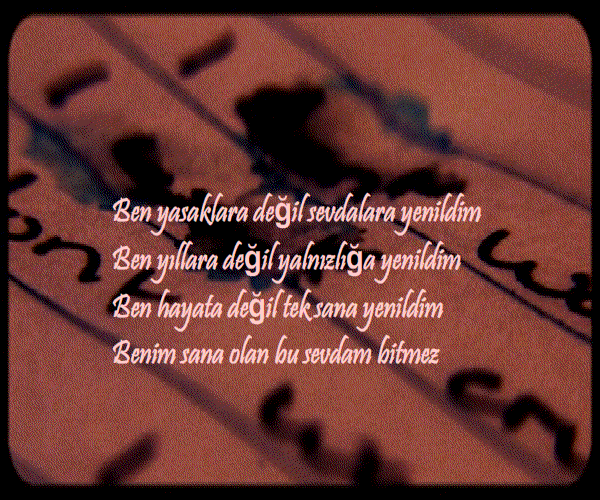 Ben yasaklara değil sevdalara yenildim
Ben yıllara değil yalnızlığa yenildim
Ben hayata değil tek sana yenildim
Benim sana olan bu sevdam bitmez